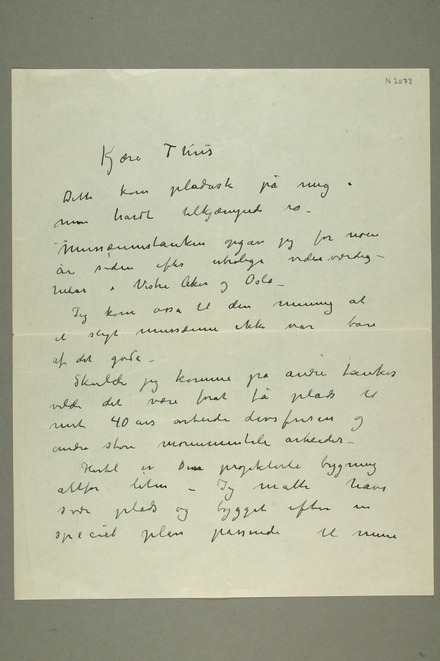 N 2073
Kjære Thiis
Dette kom pladask på mig i
min hardt tilkjæmpede ro –
Musæumstanken opgav jeg for noen
år siden efter utrolige viderværdig-
heter i Vestre Aker og Oslo –
Jeg kom ossa til den mening at
et sligt musæum ikke var bare
af det gode –
Skulde jeg komme pa andre tanker
vilde det være forat få plads til
mit 40 års arbeide livsfrisen og
andre store monumentale arbeider –
Hertil er Din projekterte bygning
altfor liten – Jeg matte have
svær plads og bygget efter en
speciel plan passende til mine